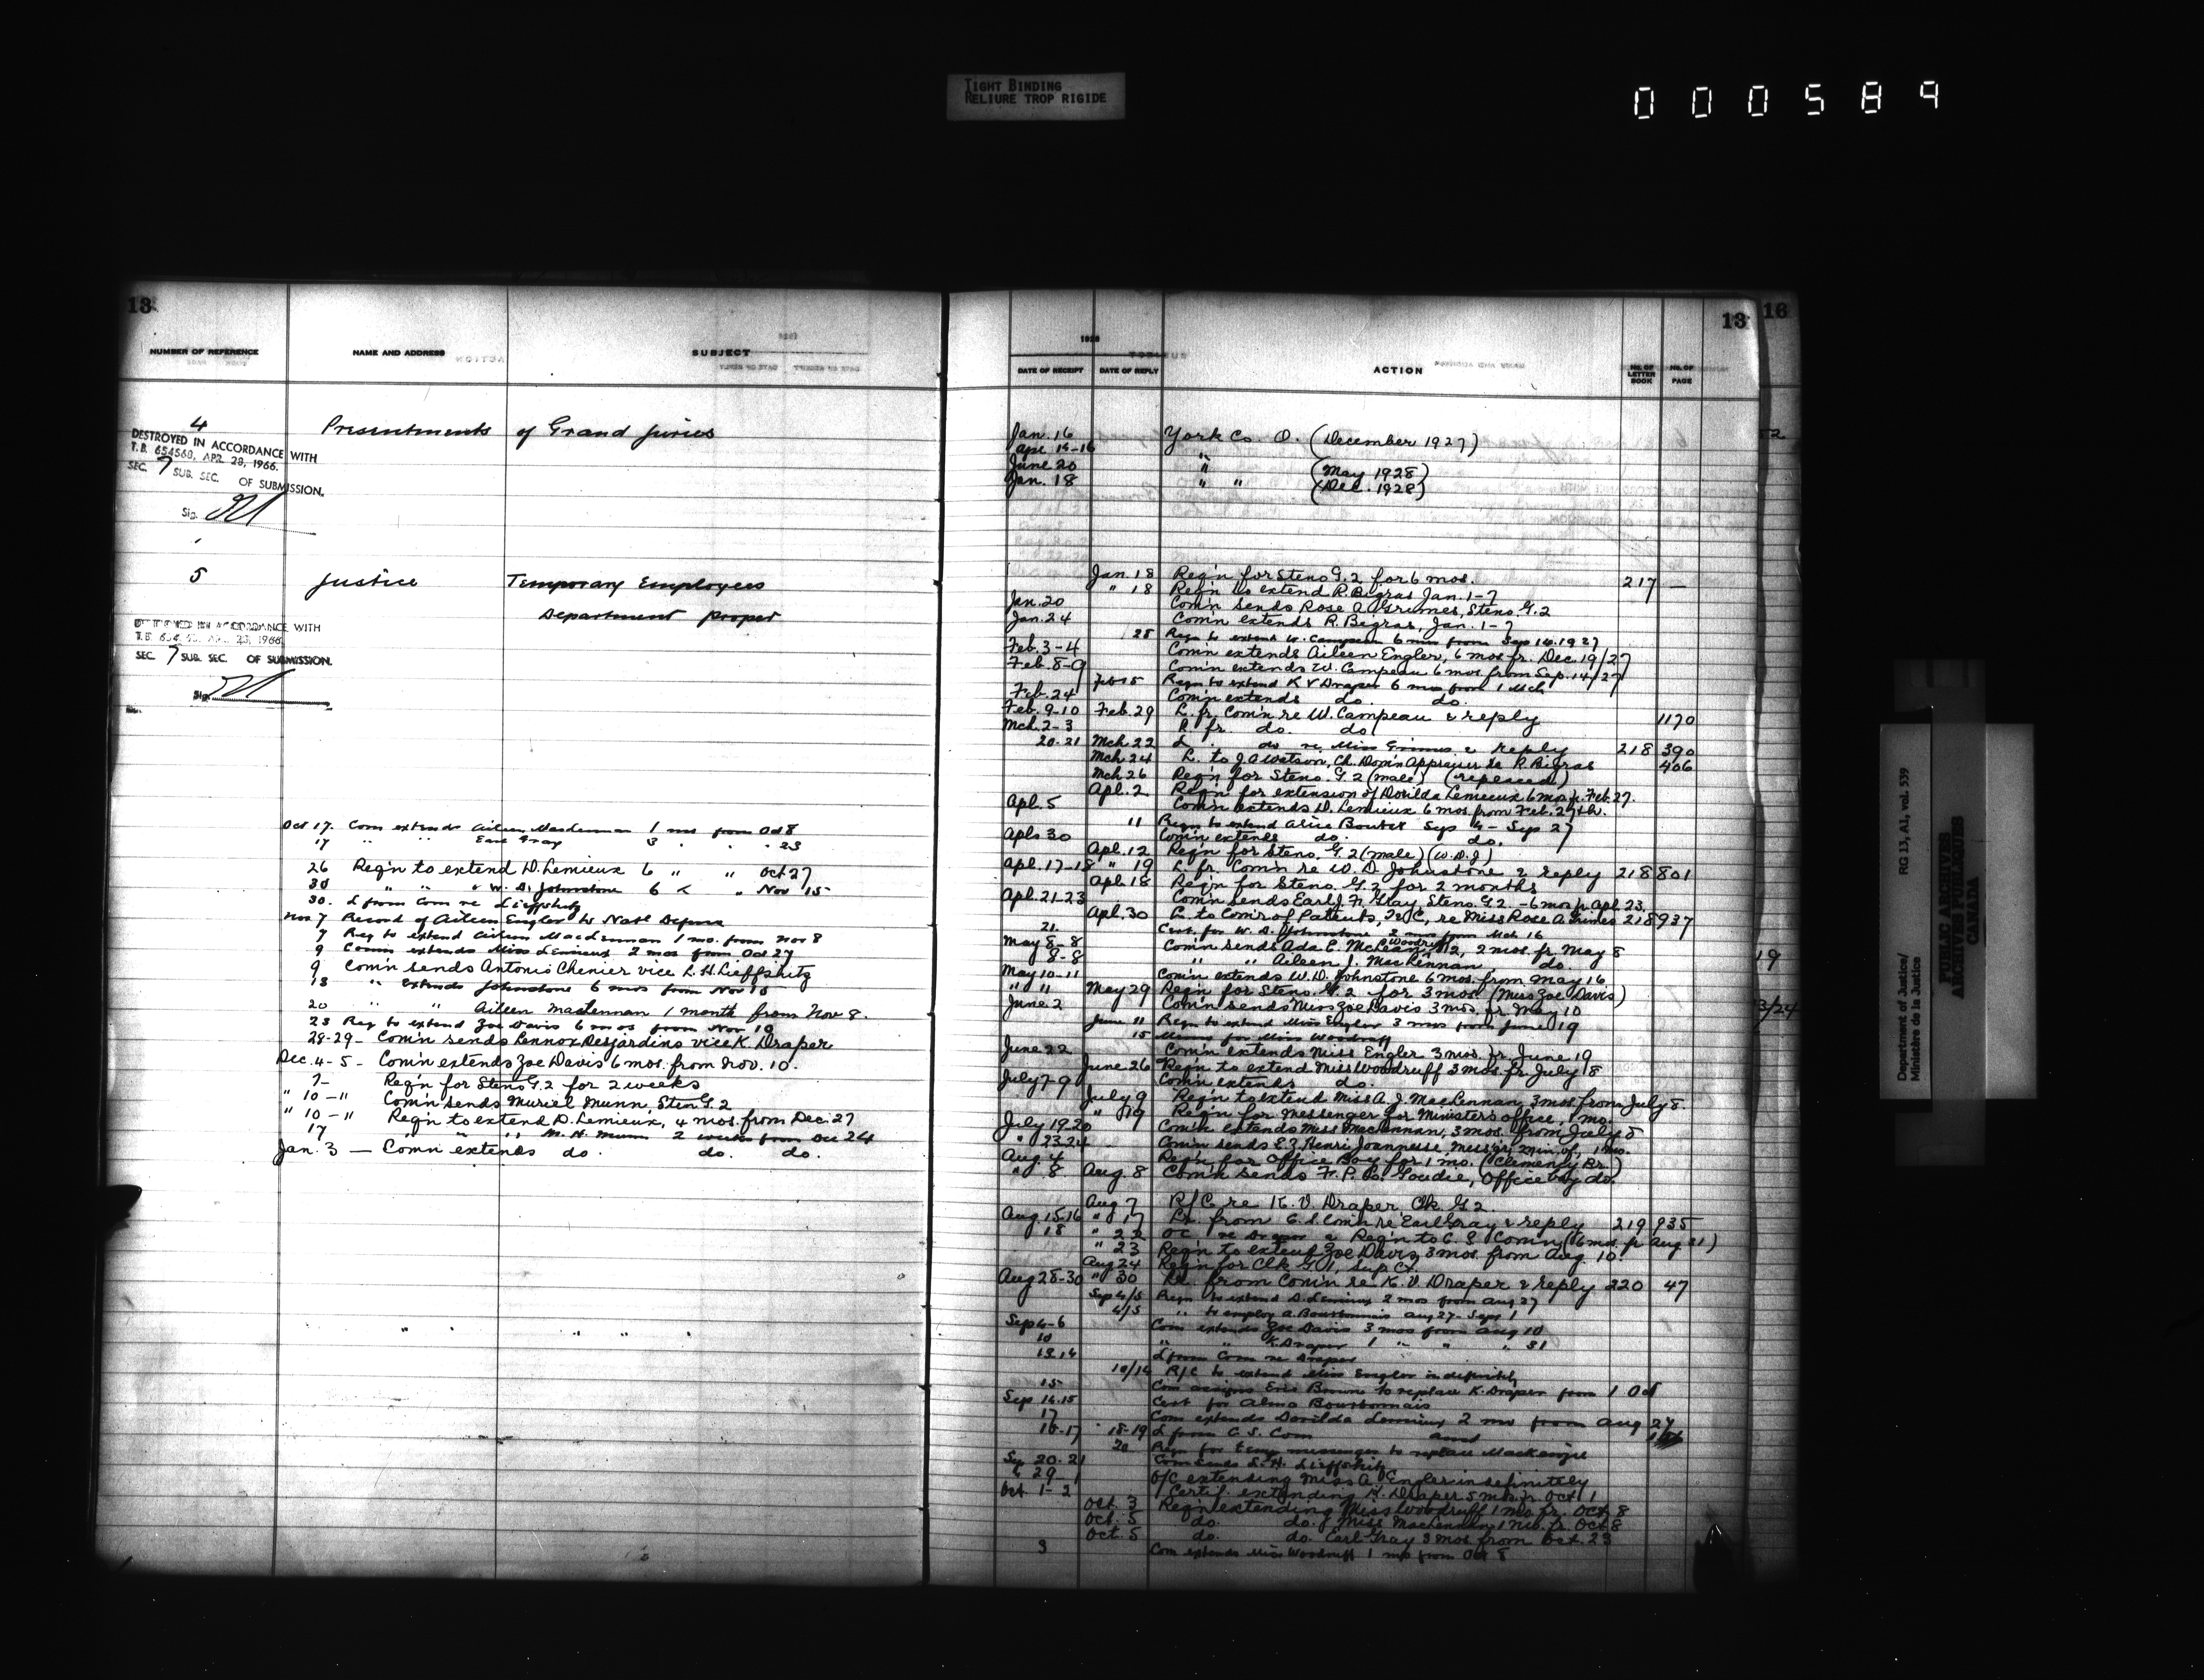 TIGHT BINDING
RELIURE TROP RIGIDE
000589
13
NUMBER OF REFERENCE NAME AND ADDRESS SUBJECT
4 Presentments of Grand Juries
DESTROYED IN ACCORDANCE WITH
T.B. 654560, APR. 28, 1966.
SEC. 7 SUB. SEC. OF SUBMISSION.
Sig.
5 Justice Temporary Employees
Department Proper
DESTROYED IN ACCORDANCE WITH
SEC. 7 SUB. SEC. OF SUBMISSION.
Sig.
Oct 17. Com extends Aileen MacLennan 1 mo from Oct 8
17 " " Earl Gray 3 " " 23
26 Reqn to extend D. Lemieux 6 " " Oct 27
30 " " " W. D. Johnstone 6 " " Nov 15
30. L from Com re Lieffshitz
Nov 7 Record of Aileen Engler to Natl Defence
7 Req to extend Aileen MacLennan 1 mo. from Nov 8
9 Comn extends Miss Lemieux 2 mos from Oct 27
9 Comn sends Antonio Chenier vice L. H. Lieffshitz
13 " Extends Johnstone 6 mos from Nov 15
20 " " Aileen MacLennan 1 month from Nov 8.
23 Req to extend Zoe Davis 6 mos from Nov 10
28-29- Comn sends Lennox Desjardins vice K. Draper
Dec. 4-5 - Comn extends Zoe Davis 6 mos. from Nov. 10.
7- Reqn for Steno G.2 for 2 weeks
" 10-11 Comn sends Muriel Munn, Steno G.2
" 10-11 Reqn to extend D. Lemieux, 4 mos. from Dec. 27
17 " " " M. H. Munn 2 weeks from Dec 24
Jan. 3 — Comn extends do. do. do.
13 16
1928
DATE OF RECEIPT DATE OF REPLY ACTION No. OF LETTER BOOK No. OF PAGE
Jan. 16 York Co. O. (December 1927)
Apr. 14-16 "
June 20 " (May 1928)
Jan. 18 " " (Dec. 1928)
Jan. 18 Reqn for Steno G.2 for 6 mos. 217 —
" 18 Reqn to extend R. Bigras Jan. 1-7
Jan. 20 Comn sends Rose A. Grimes, Steno. G.2
Jan. 24 Comn extends R. Bigras, Jan. 1-7
25 Reqn to extend W. Campeau 6 mos from Sep 14. 1927
Feb. 3-4 Comn extends Aileen Engler, 6 mos. fr. Dec. 19/27
Feb. 8-9 Comn extends W. Campeau 6 mos from Sep. 14/27
Feb 15 Reqn to extend K V Draper 6 mos from 1 Mch
Feb. 24 Comn extends do. do.
Feb. 9-10 Feb. 29 L. fr. Comn re W. Campeau & reply 1170
Mch. 2-3 R. fr. do. do.
20-21 Mch 22 L. do re Miss Grimes & reply 218 390
Mch 24 L. to J A Watson, Ch. Dom'n Appraiser re R. Bigras 406
Mch 26 Reqn for Steno. G.2 (male) (repeated)
Apl. 2 Reqn for extension of Dorilda Lemieux 6 mos fr. Feb. 27.
Apl. 5 Comn extends D. Lemieux 6 mos. from Feb. 27th.
11 Reqn to extend Alice Boutet Sep 4 - Sep 27
Apls 30 Comn extends do. do.
Apl. 12 Reqn for Steno. G.2 (male) (W.D.J)
Apl. 17-18 " 19 L. fr. Comn re W. D. Johnstone & reply 218 801
Apl. 18 Reqn for Steno. G.2 for 2 months
Apl. 21-23 Comn sends Earl J. F. Gray, Steno. G2 - 6 mos fr Apl 23.
Apl. 30 L. to Comr of Patents, re Miss Rose A. Grimes 218 937
21. Cert. for W. D. Johnstone 2 mos from Mch 16
May 8-8 Comn sends Ada E. McLean Woodruff, 2 mos. fr. May 8
8-8 " " Aileen J. MacLennan do.
May 10-11 Comn extends W. D. Johnstone 6 mos. from May 16
" 11 May 29 Reqn for Steno. G.2 for 3 mos. (Miss Zoe Davis)
June 2 Comn sends Miss Zoe Davis 3 mos. fr May 10
June 11 Reqn to extend Miss Engler 3 mos from June 19
15 Memo for Miss Woodruff
June 22 Comn extends Miss Engler 3 mos. fr. June 19
June 26 Reqn to extend Miss Woodruff 3 mos. fr. July 8
July 7-9 Comn extends do.
July 9 Reqn to extend Miss A. J. MacLennan, 3 mos. from July 8.
" 19 Reqn for Messenger for Minister's office, 1 mo.
July 19-20 Comn extends Miss MacLennan, 3 mos. from July 8
" 23-24 Comn sends Henri Joannesse, Mess'gr, Min. of., 1 mo.
Aug. 4 Reqn for Office Boy for 1 mo. (Clemency Br.)
" 8 Aug. 8 Comn sends F. P. Goudie, Office boy do.
Aug 7 R/C re K. V. Draper, Clk G.2
Aug. 15-16 " 17 L. from C. S. Comn re Earl Gray & reply 219 935
18 " 22 O C re Draper & Reqn to C. S. Comn (6 mos. fr Aug 31)
" 23 Reqn to extend Zoe Davis 3 mos. from Aug. 10.
Aug 24 Reqn for Clk G 1, Sup Ct.
Aug 28-30 " 30 L. from Comn re K. V. Draper & reply 220 47
Sep 4/5 Reqn to extend D. Lemieux 2 mos from Aug 27
4/5 " to employ A. Bourbonnais Aug 27 - Sept 1
Sep 4-6 Com extends Zoe Davis 3 mos from Aug 10
10 " " K. Draper 1 " " 31
13.14 L from Com re Draper
10/14 R/C to extend Miss Engler indefinitely
15 Com assigns Eric Brown to replace K. Draper from 1 Oct
Sep 14.15 Cert for Alma Bourbonnais
17 Com extends Dorilda Lemieux 2 mo from Aug 27
16-17 18-19 L from C. S. Com and
20 Reqn for temp messenger to replace Mackenzie
Sep 20-21 Com sends L. H. Lieffshitz
" 29 O/C extending Miss A. Engler indefinitely
Oct 1-2 Certif. extending K. Draper 5 mos. fr. Oct. 1
Oct. 3 Reqn extending Miss Woodruff 1 mo. fr. Oct. 8
Oct. 5 do. do. Miss MacLennan 1 mo. fr. Oct 8
Oct. 5 do. do. Earl Gray 3 mos. from Oct. 23
9 Com extends Miss Woodruff 1 mo from Oct 8
19
3/24
Department of Justice/ RG 13, A1, vol. 539
Ministère de la Justice
PUBLIC ARCHIVES
ARCHIVES PUBLIQUES
CANADA